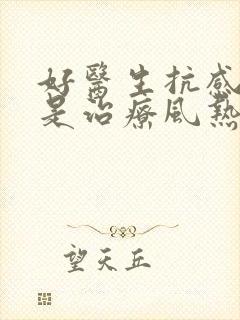 好醫生抗感
是治療風熱
望天丘